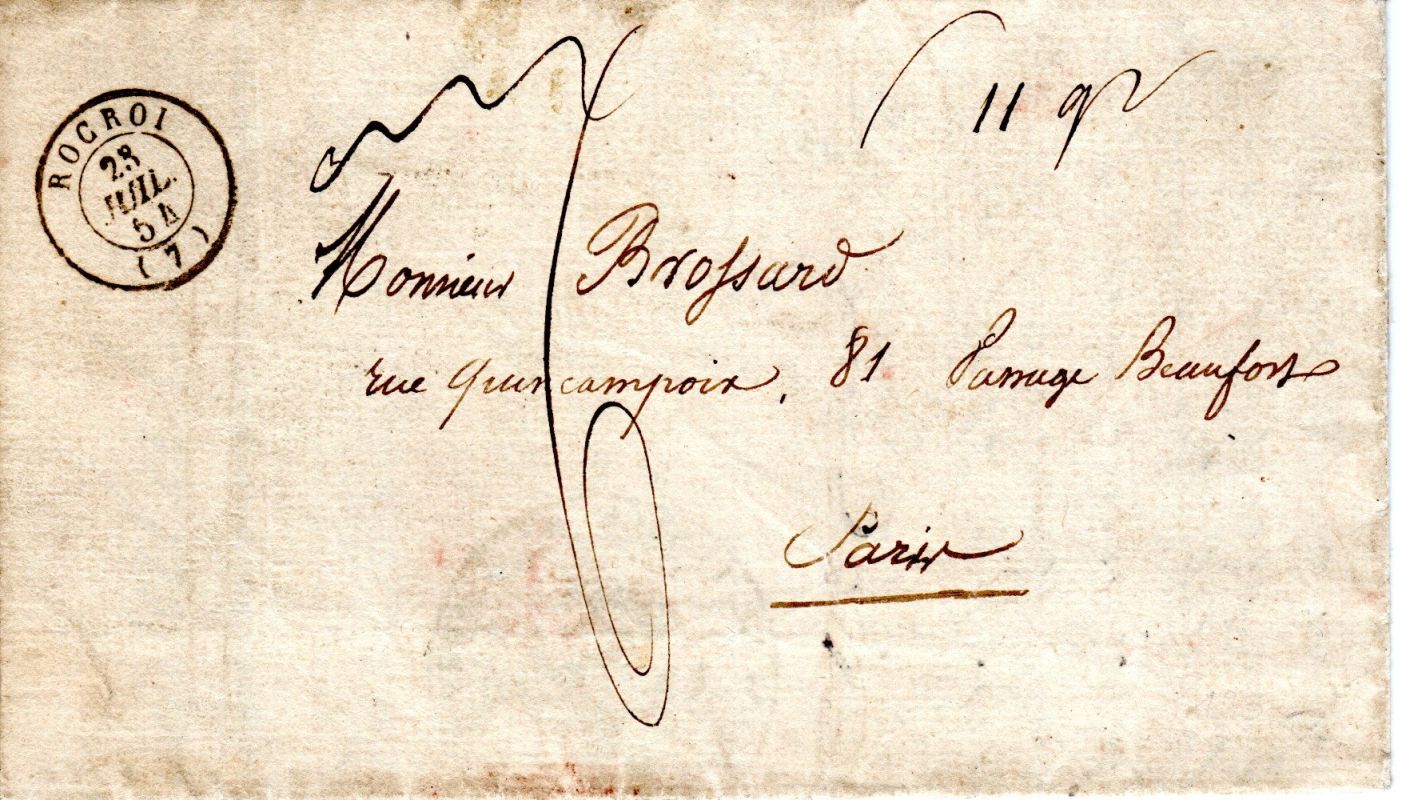 ROCROI
23
JUIL.
54
(7)
11 gr
Monsieur Brossard
rue Quincampoix, 81 Passage Beaufort
Paris